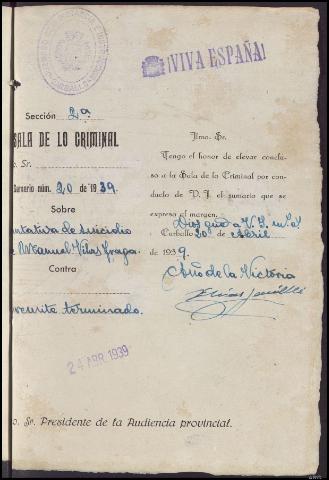 ¡VIVA ESPAÑA!
Sección 2ª
SALA DE LO CRIMINAL
o. Sr.
Sumario núm. 20 de 1939.
Sobre
tentativa de suicidio
e Manuel Vilas Fraga.
Contra
terminado.
24 ABR 1939
Ilmo. Sr.
Tengo el honor de elevar conclu-
so a la Sala de lo Criminal por con-
ducto de V. I. el sumario que se
expresa al margen.
Dios gue a V. I. m. a.
Carballo 20 de Abril
de 1939.
Año de la Victoria
o. Sr. Presidente de la Audiencia provincial.